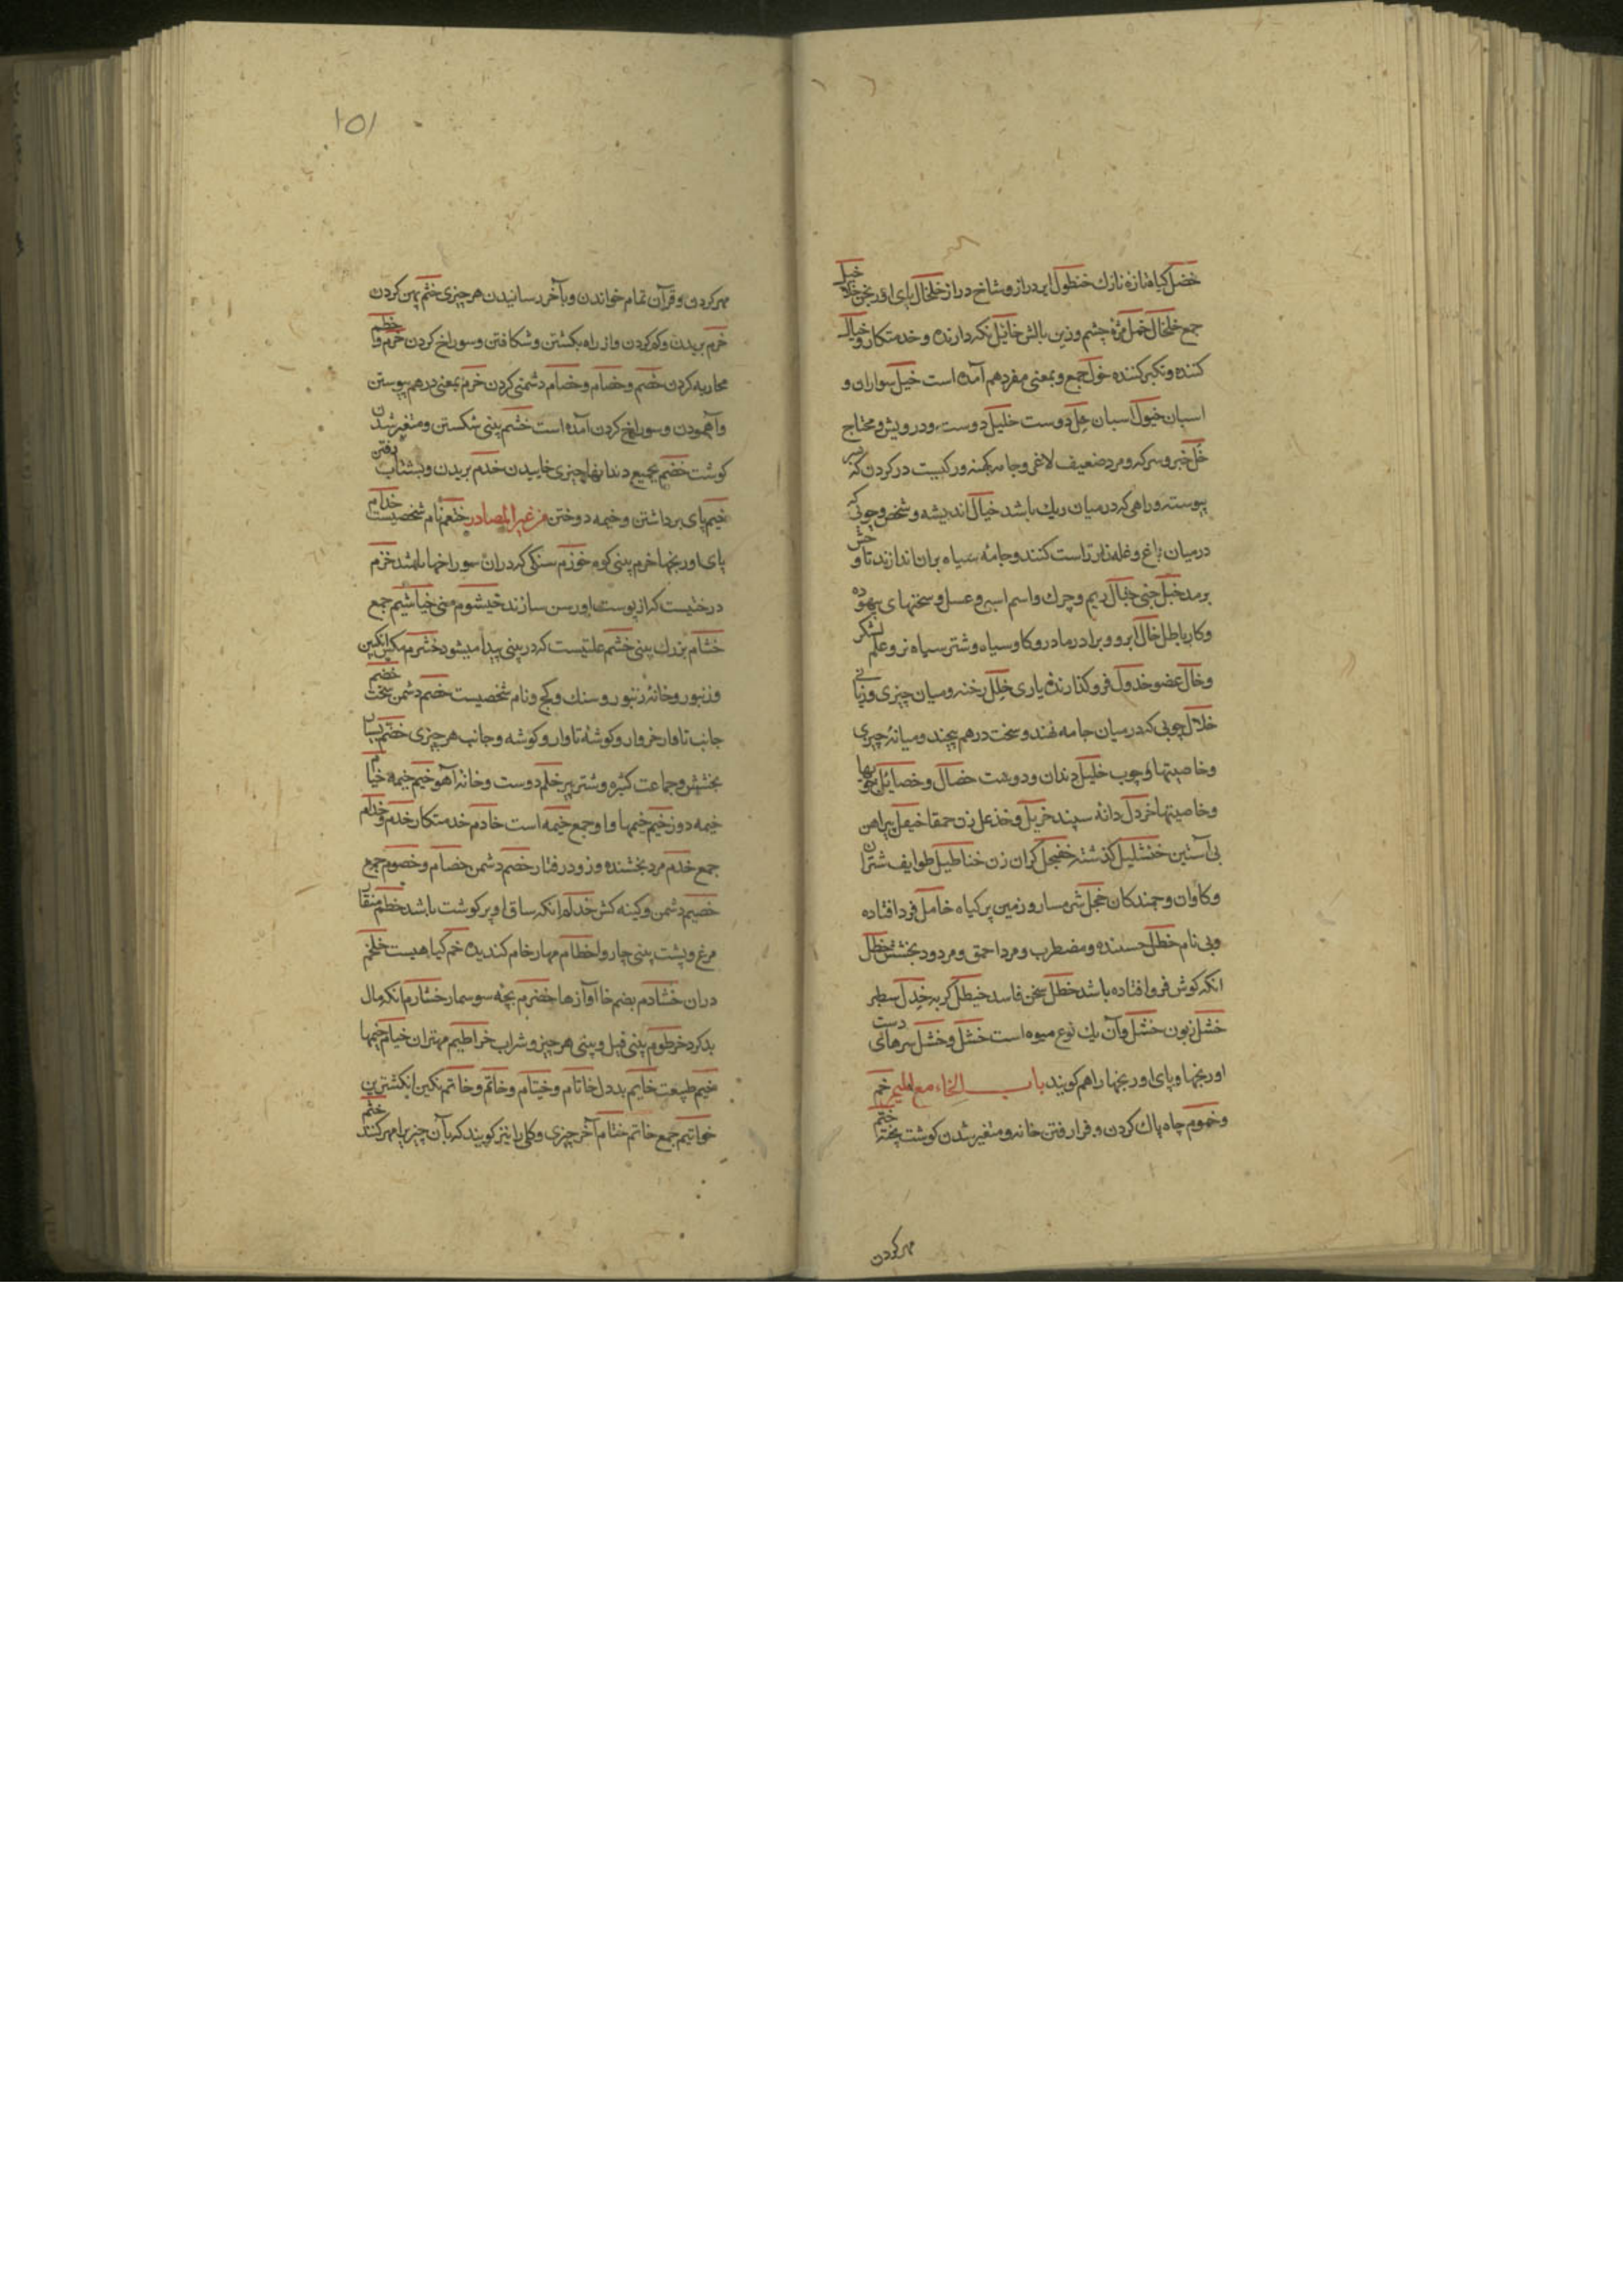 خضل کیاه تازه نازک خنطول ایر دراز و شاخ دراز خلخال پای اورنجن خلا خیل
جمع خلخال خمل مژه چشم و زین بالش خایل نکه دارنده و خدمتکار و خیال
کننده و تکبر کننده خول جمع و بمعنی مفرد هم آمده است خیل سواران و
اسبان خیول اسبان خل دوست خلیل دوست و درویش و محتاج
خل خبر و سرکه و مرد ضعیف لاغر و جامه کهنه و رکیست در کردن که
پیوسته و راهی که در میان ریک باشد خیال اندیشه و شخص و چوبی که
در میان باغ و غله زار راست کنند و جامه سیاه بران اندازند تا وحش
برمد خبل جنی خبال ریم و چرک و اسم اسبی و عسل و سختیهای بیهوده
و کار باطل خال ابرو و برادر مادر و کاو سیاه و شتر سیاه نر و علم لشکر
و خال عضو خذول فرو کذارنده یاری خلل رخنه و میان چیزی و زیانی
خلال چوبی که در میان جامه نهند و سخت در هم پیچند و میانه چیزی
و خاصیتها و چوب خلیل دندان و دوست خصال و خصایل خویها
و خاصیتها خردل دانه سپند خریل و خذعل زن حمقا خیعل پیراهن
بی آستین خنشلیل کذشته خفنجل کران زن خناطیل طوایف شتران
و کاوان و جمندکان خجل شرمسار و زمین پر کیاه خامل فرد افتاده
و بی نام خطل جسنده و مضطرب و مرد احمق و مردود بخشش خطل
انکه کوش فرو افتاده باشد خطل سخن فاسد خیطل کربه خدل سطبر
خشل زبون خشل و آن یک نوع میوه است خشل و خشل سرهای دست
اورنجها و پای اورنجها را هم کویند باب الخاء مع المیم خم
و خموم چاه پاک کردن و فرا رفتن خانه و متغیر شدن کوشت پخته ختم
مهر کردن
١٥١
مهر کردن و قرآن تمام خواندن و بآخر رسانیدن هر چیزی خثم پهن کردن
خرم بریدن و کم کردن و از راه بکشتن و شکافتن و سوراخ کردن خرم وا خطم
محاربه کردن خصم و خصام و خصام دشمنی کردن خزم بمعنی در هم پیوستن
و آهمودن و سوراخ کردن آمده است خشم بینی شکستن و متغیر شدن
کوشت خضم بجمیع دندانها چیزی خاییدن خذم بریدن و بشتاب رفتن
خیم پای برداشتن و خیمه دوختن من غیر المصادر خثعم نام شخصیست خدام
پای اورنجها خرم بینی کوه خوزم سنکی که دران سوراخها باشد خزم
درختیست که از پوست او رسن سازند خیشوم بینی خیاشیم جمع
خشام بزرک بینی خشم علتیست که در بینی پیدا میشود خشرم مکس انکبین
و زنبور و خانه زنبور و سنک و کچ و نام شخصیست خصم دشمن سخت خضم
جانب تاوار خروار و کوشه تاوار و کوشه و جانب هر چیزی خضم بسیار
بخشش و جماعت کثیره و شتر پیر خلم دوست و خانه آهو خیم خیمه خیام
خیمه دوز خیم خیمها و او جمع خیمه است خادم خدمتکار خدم و خدام
جمع خذم مرد بخشنده و زود رفتار خصم دشمن خصام و خصوم جمع
خصیم دشمن و کینه کش خدله انکه ساق او پر کوشت باشد خطم منقار
مرغ و پشت بینی چاروا خطام مهار خام کندیده خم کیاهیست خلخم
دران خشادم بضم خا آوازها خضرم بچه سوسمار خشارم انکه مال
بد کرد خرطوم بینی فیل و بینی هر چیز و شراب خراطیم مهتران خیام خیمها
خیم طبیعت خایم بددل خاتام و خیتام و خاتم و خاتم نکین انکشترین
خواتیم جمع خاتم ختام آخر چیزی و کلی را نیز کویند که بآن چیز را مهر کنند ختم